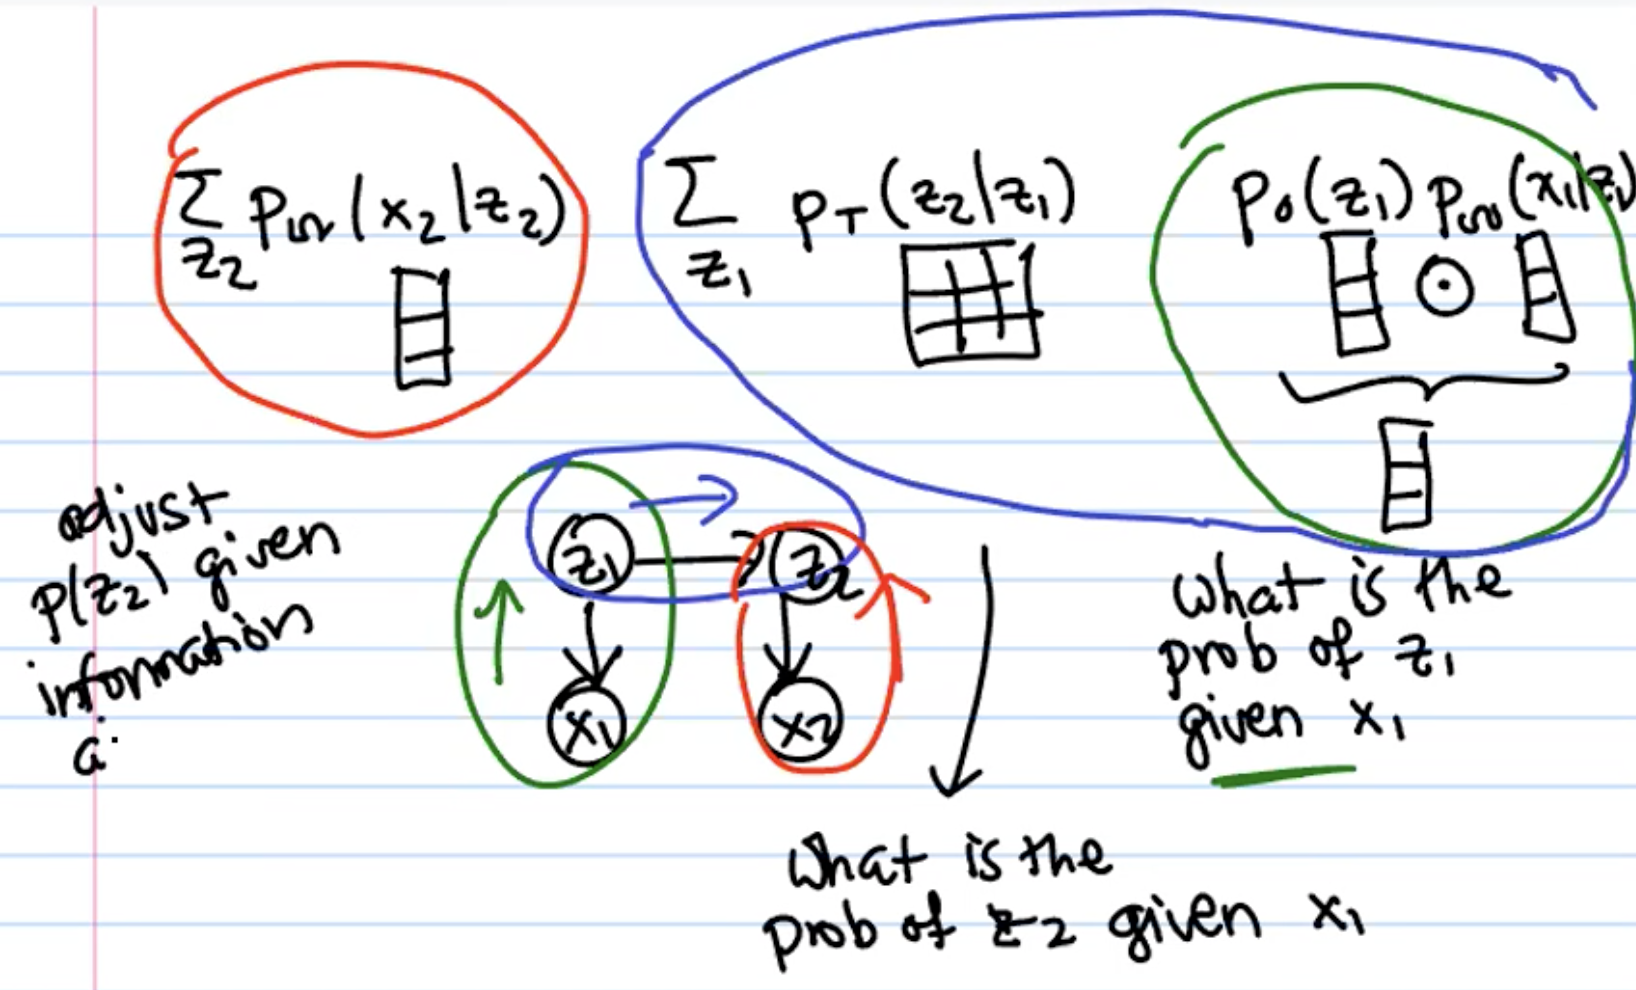 Σ p_w(x₂|z₂) Σ p_T(z₂|z₁) p₀(z₁) p_w(x₁|z₁)
z₂ z₁
adjust
p(z₂) given
information
z₁ z₂
x₁ x₂
What is the
prob of z₁
given x₁
What is the
prob of z₂ given x₁